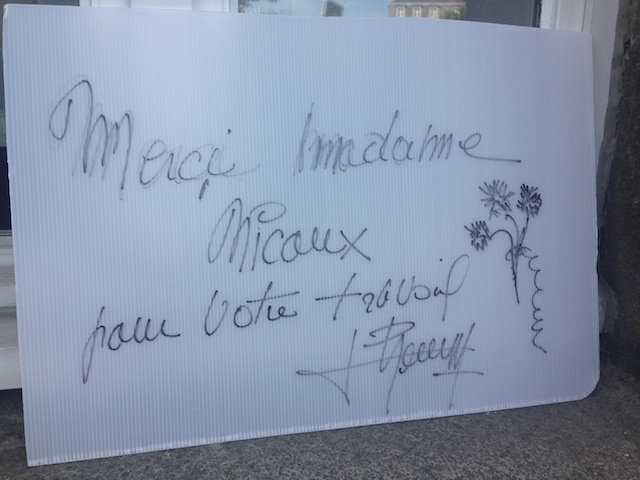 Merci madame
Micoux
pour votre travail